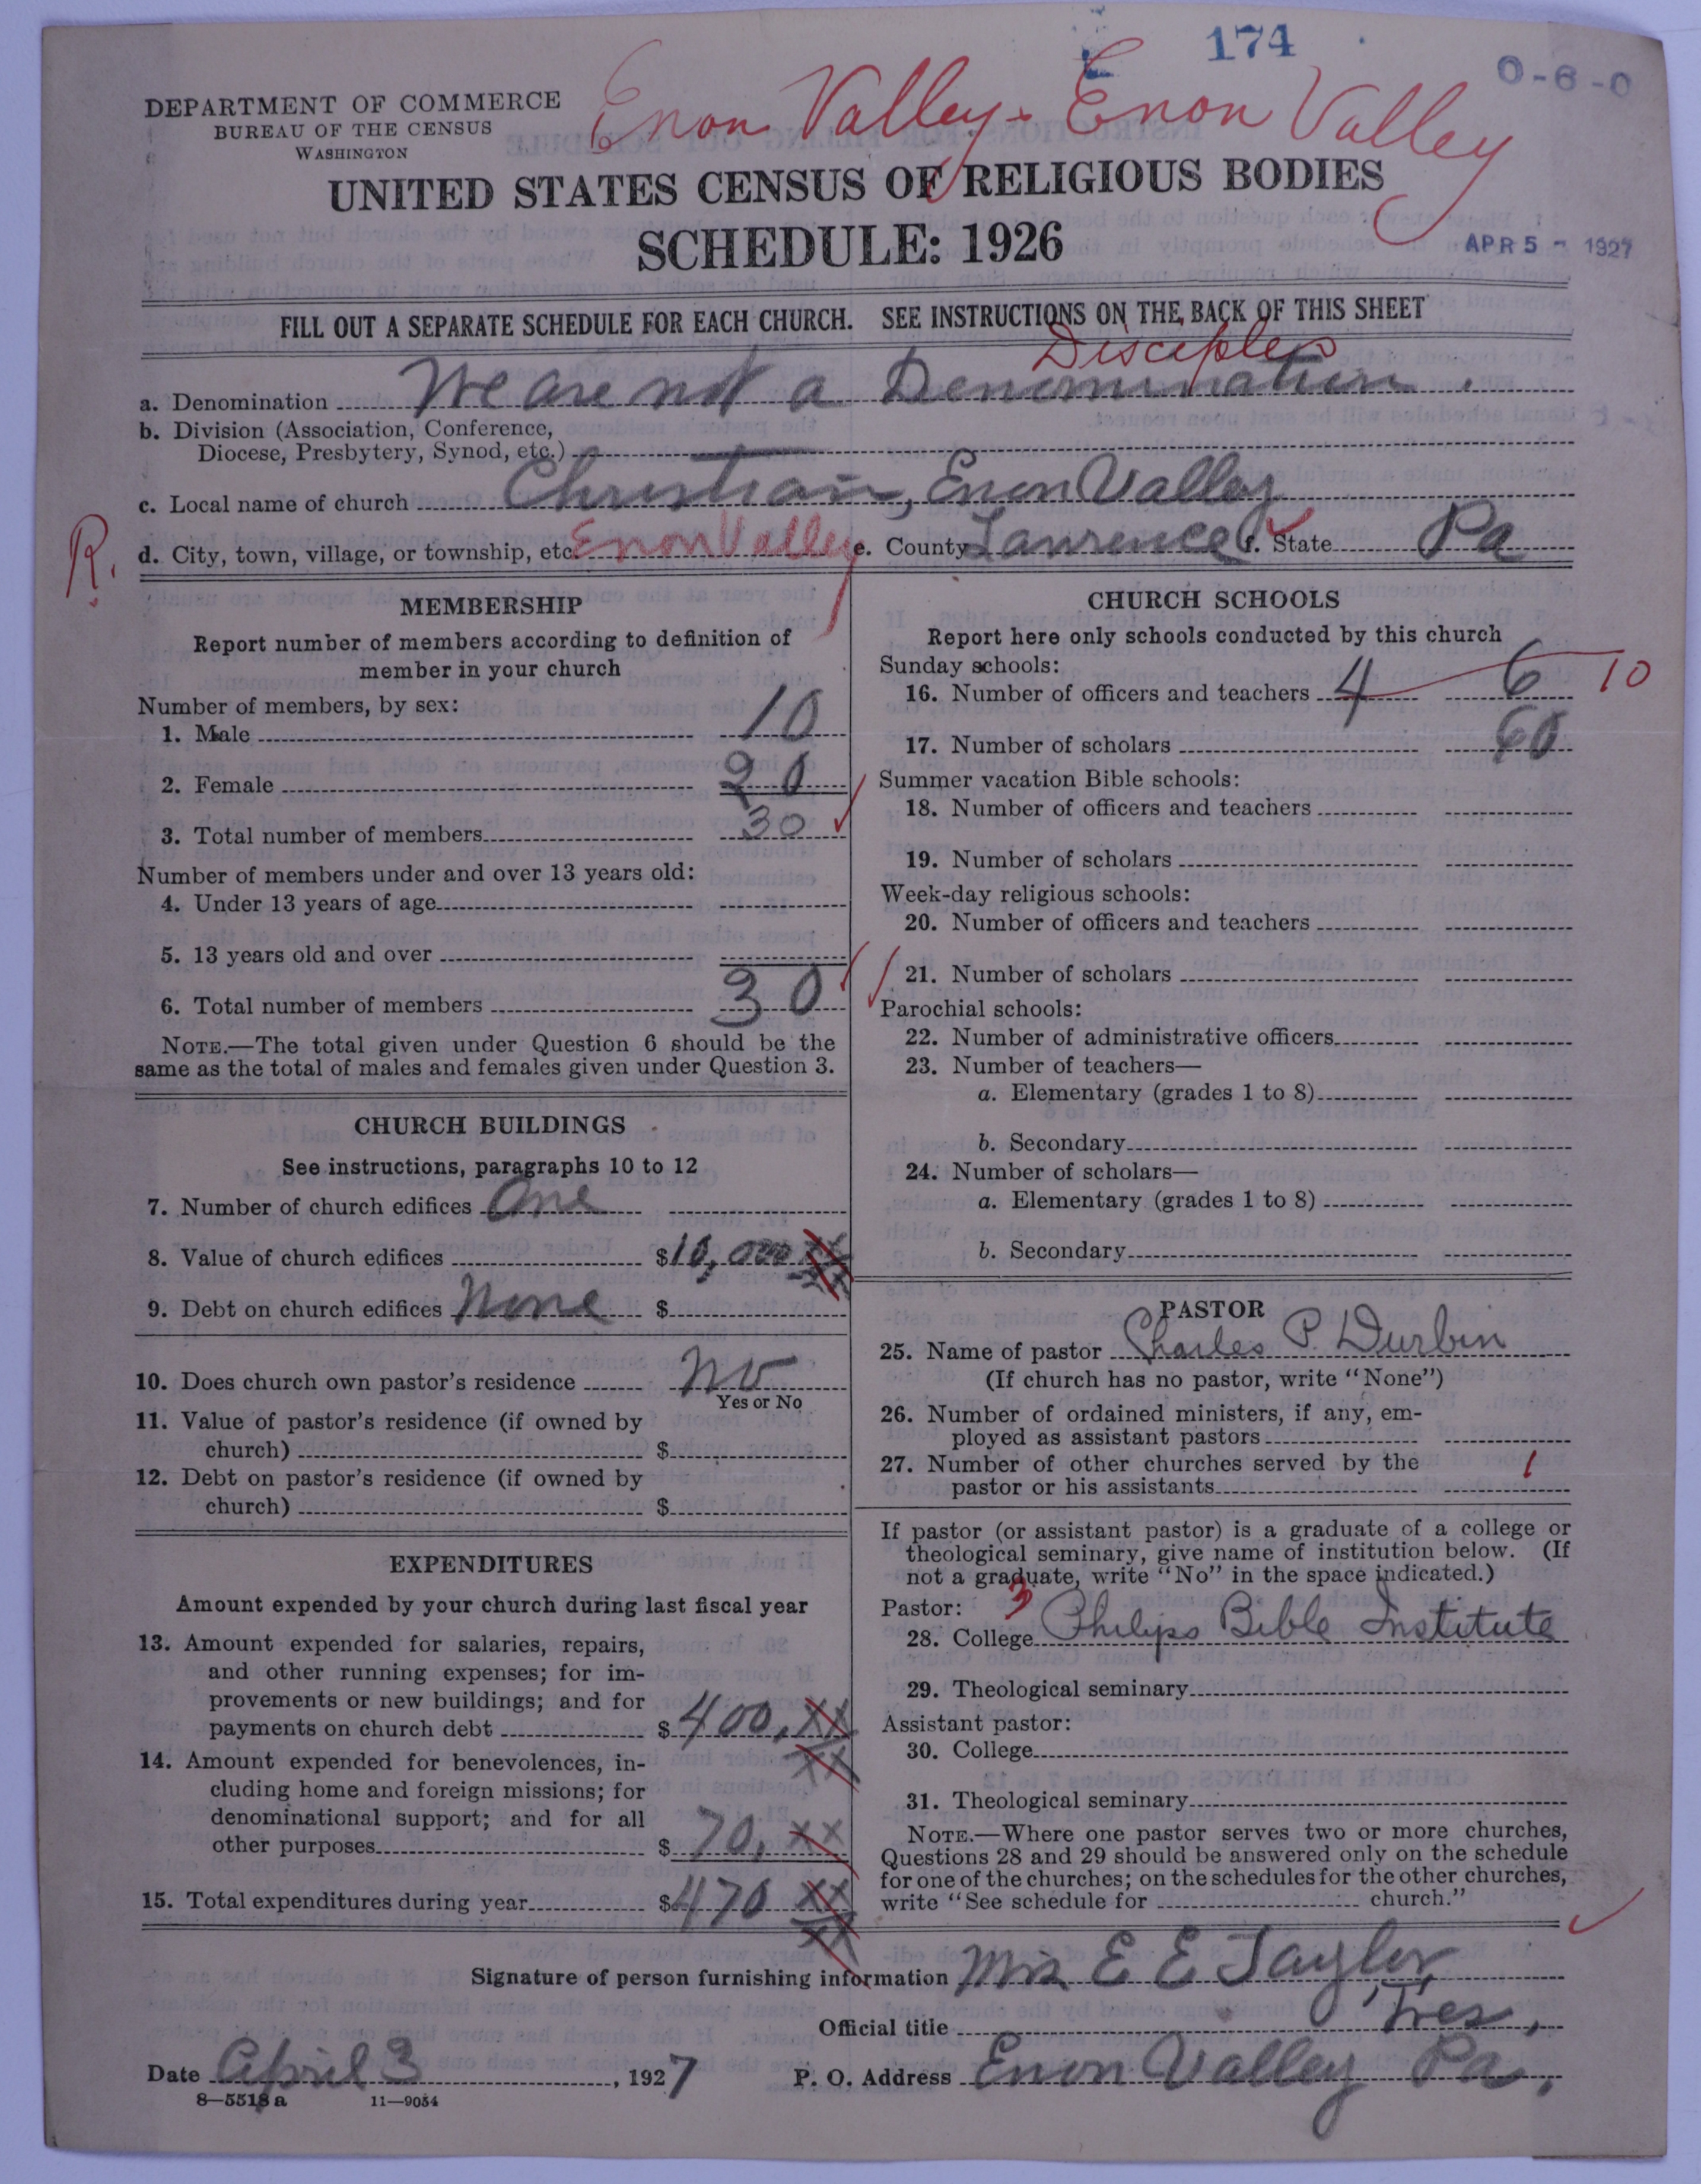 174
0-6-0
DEPARTMENT OF COMMERCE
BUREAU OF THE CENSUS
WASHINGTON
Enon Valley - Enon Valley
UNITED STATES CENSUS OF RELIGIOUS BODIES
SCHEDULE: 1926
APR 5 - 1927
FILL OUT A SEPARATE SCHEDULE FOR EACH CHURCH. SEE INSTRUCTIONS ON THE BACK OF THIS SHEET
Disciples
a. Denomination We are not a Denomination.
b. Division (Association, Conference,
Diocese, Presbytery, Synod, etc.)
c. Local name of church Christian, Enon Valley
R.
d. City, town, village, or township, etc. Enon Valley e. County Lawrence f. State Pa
MEMBERSHIP
Report number of members according to definition of
member in your church
Number of members, by sex:
1. Male 10
2. Female 20
3. Total number of members 30
Number of members under and over 13 years old:
4. Under 13 years of age
5. 13 years old and over
6. Total number of members 30
NOTE.—The total given under Question 6 should be the
same as the total of males and females given under Question 3.
CHURCH BUILDINGS
See instructions, paragraphs 10 to 12
7. Number of church edifices One
8. Value of church edifices $10,000 xx
9. Debt on church edifices None $
10. Does church own pastor's residence No
Yes or No
11. Value of pastor's residence (if owned by
church) $
12. Debt on pastor's residence (if owned by
church) $
EXPENDITURES
Amount expended by your church during last fiscal year
13. Amount expended for salaries, repairs,
and other running expenses; for im-
provements or new buildings; and for
payments on church debt $400. xx
xx
14. Amount expended for benevolences, in-
cluding home and foreign missions; for
denominational support; and for all
other purposes $70. xx
15. Total expenditures during year $470 xx
xx
CHURCH SCHOOLS
Report here only schools conducted by this church
Sunday schools:
16. Number of officers and teachers 4 6 10
17. Number of scholars 60
Summer vacation Bible schools:
18. Number of officers and teachers
19. Number of scholars
Week-day religious schools:
20. Number of officers and teachers
21. Number of scholars
Parochial schools:
22. Number of administrative officers
23. Number of teachers—
a. Elementary (grades 1 to 8)
b. Secondary
24. Number of scholars—
a. Elementary (grades 1 to 8)
b. Secondary
PASTOR
25. Name of pastor Charles P. Durbin
(If church has no pastor, write "None")
26. Number of ordained ministers, if any, em-
ployed as assistant pastors
27. Number of other churches served by the
pastor or his assistants 1
If pastor (or assistant pastor) is a graduate of a college or
theological seminary, give name of institution below. (If
not a graduate, write "No" in the space indicated.)
Pastor: 3
28. College Philips Bible Institute
29. Theological seminary
Assistant pastor:
30. College
31. Theological seminary
NOTE.—Where one pastor serves two or more churches,
Questions 28 and 29 should be answered only on the schedule
for one of the churches; on the schedules for the other churches,
write "See schedule for church."
Signature of person furnishing information Mrs E E Taylor
Official title Tres.
Date April 3, 1927 P. O. Address Enon Valley Pa.
8—5518 a 11—9054